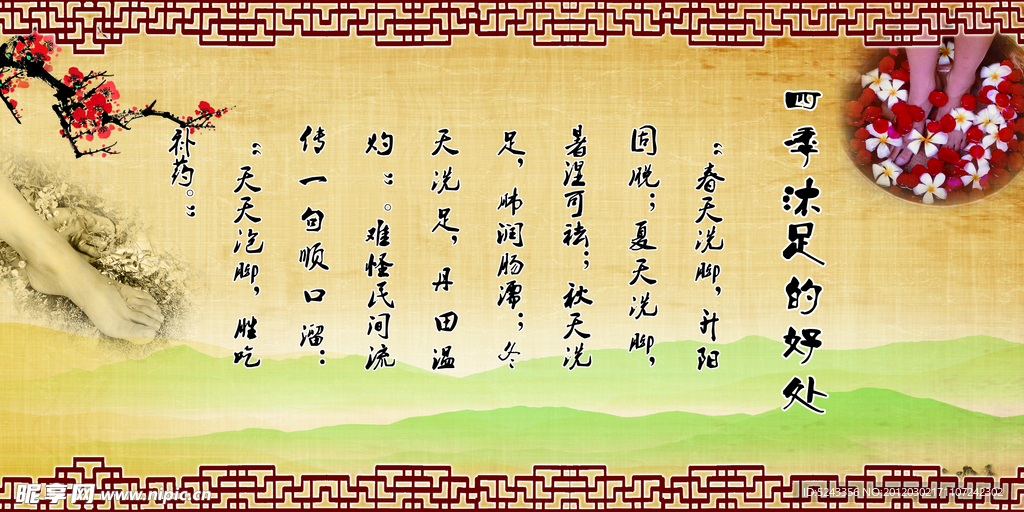 四季沐足的好处
“春天洗脚，升阳
固脱；夏天洗脚，
暑湿可祛；秋天洗
足，肺润肠濡；冬
天洗足，丹田温
灼”。难怪民间流
传一句顺口溜：
“天天泡脚，胜吃
补药。”
昵享网 www.nipic.cn
ID:5243356 NO:20120302171107242302